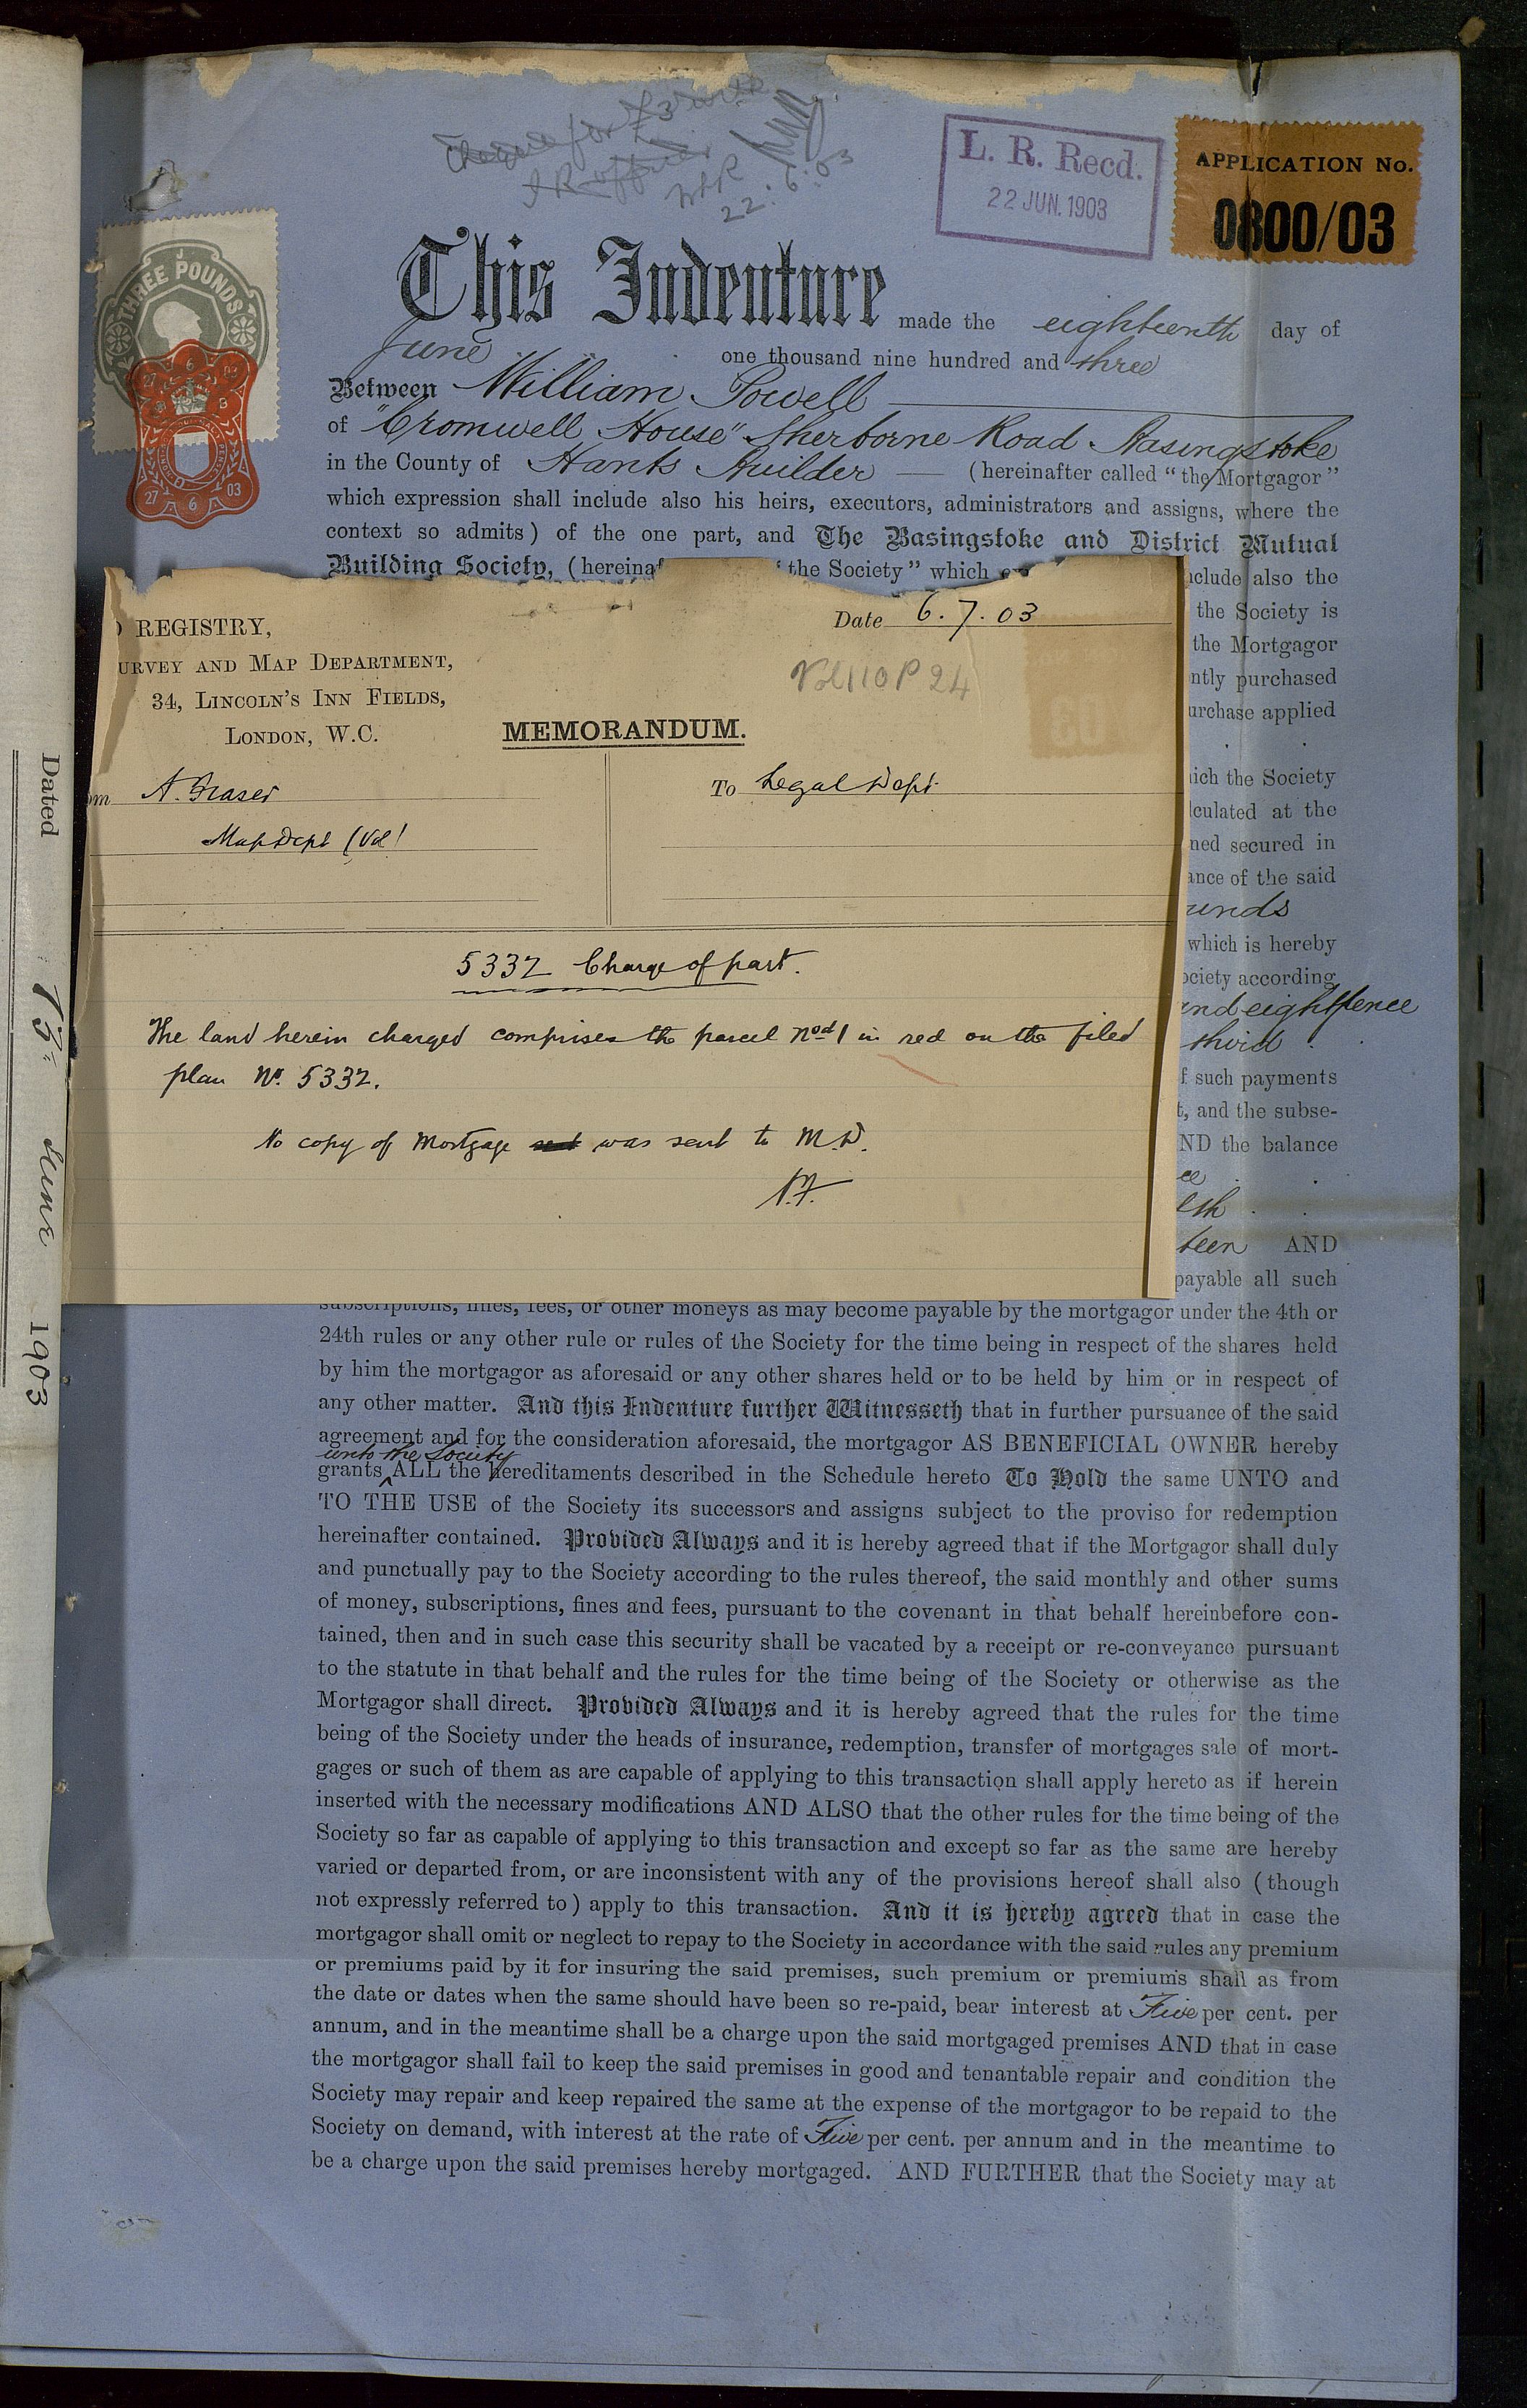 Cheque for £3
22.6.03
L. R. Recd.
22 JUN. 1903
APPLICATION No.
0800/03
THREE POUNDS
27 6 03
This Indenture made the eighteenth day of
June one thousand nine hundred and three
Between William Powell
of "Cromwell House" Sherborne Road Basingstoke
in the County of Hants Builder (hereinafter called "the Mortgagor"
which expression shall include also his heirs, executors, administrators and assigns, where the
context so admits) of the one part, and The Basingstoke and District Mutual
Building Society, (hereinaf the Society" which nclude also the
the Society is
the Mortgagor
ntly purchased
urchase applied
ich the Society
lculated at the
ned secured in
ance of the said
unds
which is hereby
ociety according
and eightpence
third
f such payments
t, and the subse-
ND the balance
ce
lth
teen AND
payable all such
REGISTRY,
URVEY AND MAP DEPARTMENT,
34, LINCOLN'S INN FIELDS,
LONDON, W.C.
Date 6.7.03
Vol 110 P 24
MEMORANDUM.
om A. Fraser
Map Dept (Vol)
To Legal Dept.
5332 Charge of part.
The land herein charged comprises the parcel Nod 1 in red on the filed
plan No. 5332.
No copy of Mortgage sent was sent to M.D.
A.F.
subscriptions, fines, fees, or other moneys as may become payable by the mortgagor under the 4th or
24th rules or any other rule or rules of the Society for the time being in respect of the shares held
by him the mortgagor as aforesaid or any other shares held or to be held by him or in respect of
any other matter. And this Indenture further Witnesseth that in further pursuance of the said
agreement and for the consideration aforesaid, the mortgagor AS BENEFICIAL OWNER hereby
unto the Society
grants ALL the hereditaments described in the Schedule hereto To Hold the same UNTO and
TO THE USE of the Society its successors and assigns subject to the proviso for redemption
hereinafter contained. Provided Always and it is hereby agreed that if the Mortgagor shall duly
and punctually pay to the Society according to the rules thereof, the said monthly and other sums
of money, subscriptions, fines and fees, pursuant to the covenant in that behalf hereinbefore con-
tained, then and in such case this security shall be vacated by a receipt or re-conveyance pursuant
to the statute in that behalf and the rules for the time being of the Society or otherwise as the
Mortgagor shall direct. Provided Always and it is hereby agreed that the rules for the time
being of the Society under the heads of insurance, redemption, transfer of mortgages sale of mort-
gages or such of them as are capable of applying to this transaction shall apply hereto as if herein
inserted with the necessary modifications AND ALSO that the other rules for the time being of the
Society so far as capable of applying to this transaction and except so far as the same are hereby
varied or departed from, or are inconsistent with any of the provisions hereof shall also (though
not expressly referred to) apply to this transaction. And it is hereby agreed that in case the
mortgagor shall omit or neglect to repay to the Society in accordance with the said rules any premium
or premiums paid by it for insuring the said premises, such premium or premiums shall as from
the date or dates when the same should have been so re-paid, bear interest at Five per cent. per
annum, and in the meantime shall be a charge upon the said mortgaged premises AND that in case
the mortgagor shall fail to keep the said premises in good and tenantable repair and condition the
Society may repair and keep repaired the same at the expense of the mortgagor to be repaid to the
Society on demand, with interest at the rate of Five per cent. per annum and in the meantime to
be a charge upon the said premises hereby mortgaged. AND FURTHER that the Society may at
Dated 18th June 1903